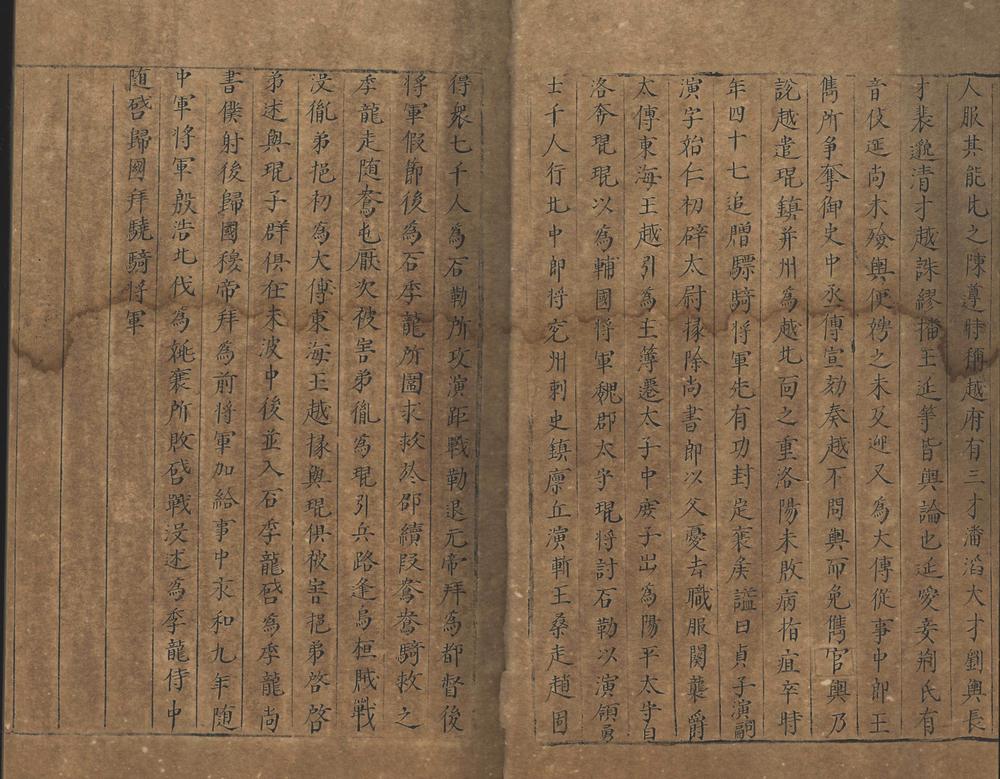 人服其能比之陳遵時稱越府有三才潘滔大才劉輿長
才裴邈清才越誅繆播王延等皆輿論也延愛妾荊氏有
音伎延尚未殮輿便娉之未及迎又為太傅從事中郎王
雋所爭奪御史中丞傅宣劾奏越不問輿而免雋官輿乃
說越遣琨鎮并州為越北面之重洛陽未敗病指疽卒時
年四十七追贈驃騎將軍先有功封定襄矦諡曰貞子演嗣
演字始仁初辟太尉掾除尚書郎以父憂去職服闋襲爵
太傅東海王越引為主簿遷太子中庶子出為陽平太守自
洛奔琨琨以為輔國將軍魏郡太守琨將討石勒以演領勇
士千人行北中郎將兗州刺史鎮廪丘演斬王桑走趙固
得衆七千人為石勒所攻演距戰勒退元帝拜為都督後
將軍假節後為石季龍所圍求救於邵續段鴦鴦騎救之
季龍走隨鴦屯厭次被害弟胤為琨引兵路逢烏桓賊戰
沒胤弟挹初為太傅東海王越掾與琨俱被害挹弟啓啓
弟述與琨子群俱在末波中後並入石季龍啓為季龍尚
書僕射後歸國穆帝拜為前將軍加給事中永和九年隨
中軍將軍殷浩北伐為姚襄所敗啓戰沒述為季龍侍中
隨啓歸國拜驍騎將軍